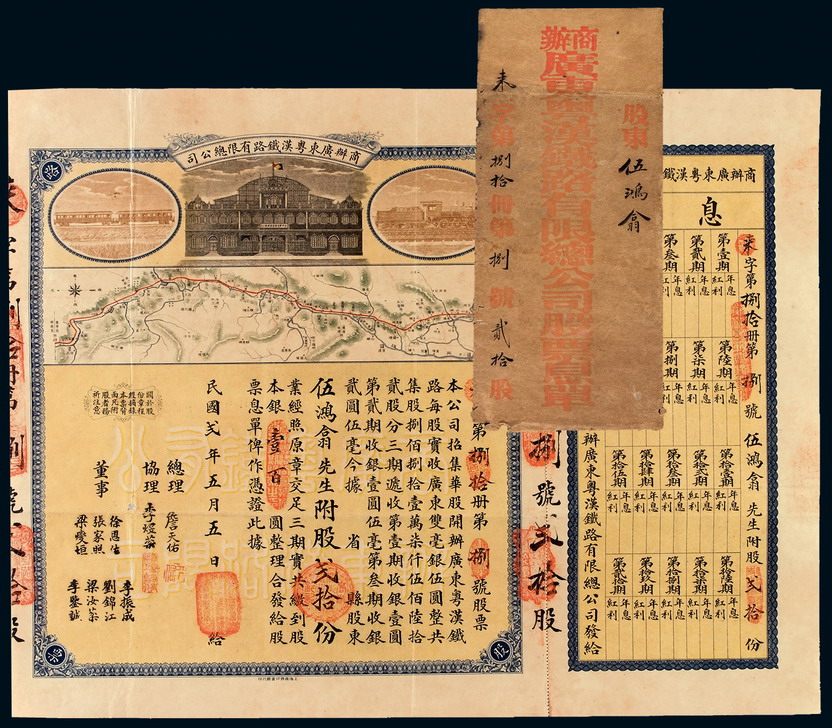 商辦廣東粵漢鐵路有限總公司
本公司招集華股開辦廣東粵漢鐵
路每股實收廣東雙毫銀伍圓整共
集股捌佰捌拾壹萬柒仟伍佰陸拾
貳股分三期遞收第壹期收銀壹圓
第貳期收銀壹圓伍毫第叁期收銀
貳圓伍毫今據 省 縣股東
伍鴻翕先生附股弍拾份
業經照原章交足三期實共繳到股
本銀壹百圓整理合發給股
票息單俾作憑證此據
民國弍年五月五日給
總理 詹天佑
協理
董事
徐恩佳
張家照
梁燮垣
李振成
劉錦江
梁汝棻
李鑒誠
第捌拾冊第捌號股票
捌號弍拾股
商辦
廣東粵漢鐵路有限總公司股票息單
股東 伍鴻翕
來字第捌拾冊第捌號貳拾股
商辦廣東粵漢鐵
息
來字第捌拾冊第捌號伍鴻翕先生附股弍拾份
第壹期 年息 紅利
第貳期 年息 紅利
第叁期 年息 紅利
第陸期 年息 紅利
第柒期 年息 紅利
第捌期 年息 紅利
第拾壹期 年息 紅利
第拾弍期 年息 紅利
第拾叁期 年息 紅利
第拾肆期 年息 紅利
第拾伍期 年息 紅利
第拾陸期 年息 紅利
第拾柒期 年息 紅利
第拾捌期 年息 紅利
第拾玖期 年息 紅利
第貳拾期 年息 紅利
辦廣東粵漢鐵路有限總公司發給